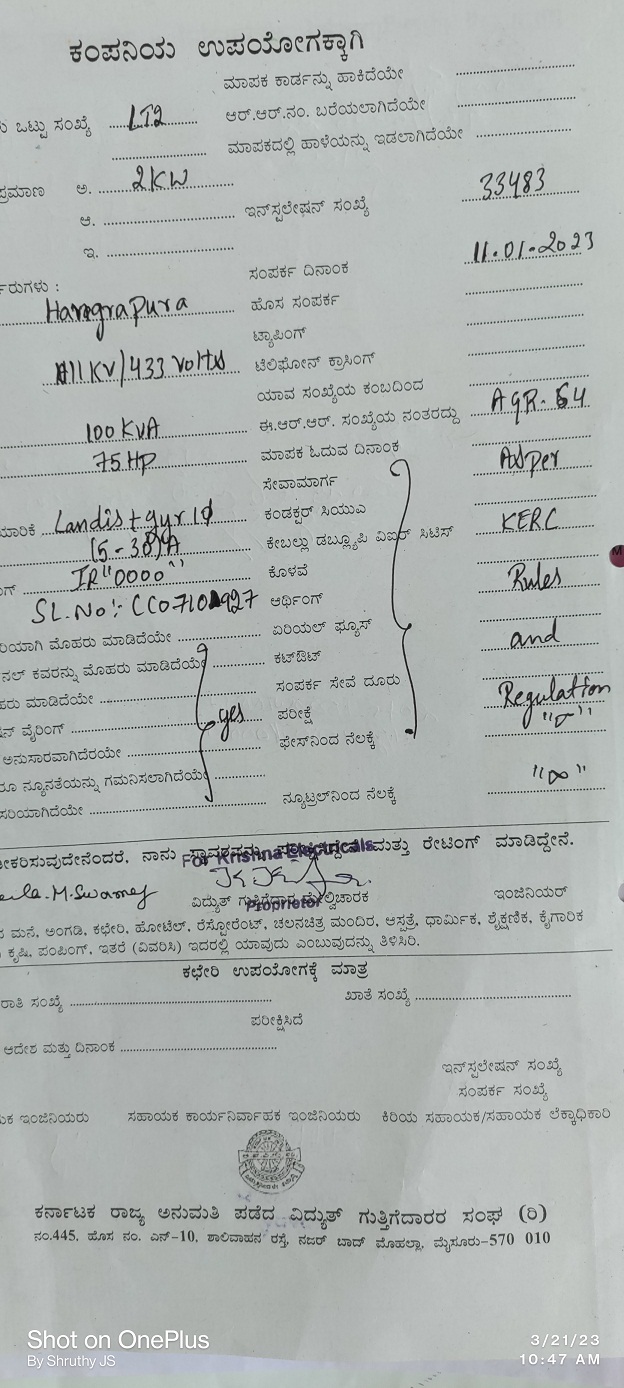 ಕಂಪನಿಯ ಉಪಯೋಗಕ್ಕಾಗಿ
ಮಾಪಕ ಕಾರ್ಡನ್ನು ಹಾಕಿದೆಯೇ
ಒಟ್ಟು ಸಂಖ್ಯೆ LT2 ಆರ್.ಆರ್.ನಂ. ಬರೆಯಲಾಗಿದೆಯೇ
ಮಾಪಕದಲ್ಲಿ ಹಾಳೆಯನ್ನು ಇಡಲಾಗಿದೆಯೇ
ಪ್ರಮಾಣ ಅ. 2KW
ಆ. ಇನ್‌ಸ್ಪಲೇಷನ್ ಸಂಖ್ಯೆ 33483
ಇ.
ಸಂಪರ್ಕ ದಿನಾಂಕ 11.01.2023
ರುಗಳು :
ಹೊಸ ಸಂಪರ್ಕ
ಟ್ಯಾಪಿಂಗ್
11KV/433 Volts ಟೆಲಿಫೋನ್ ಕ್ರಾಸಿಂಗ್
ಯಾವ ಸಂಖ್ಯೆಯ ಕಂಬದಿಂದ
100 KVA ಈ.ಆರ್.ಆರ್. ಸಂಖ್ಯೆಯ ನಂತರದ್ದು AGR-64
75 HP ಮಾಪಕ ಓದುವ ದಿನಾಂಕ
ಸೇವಾಮಾರ್ಗ Asper
ಯಾರಿಕೆ Landis + gyr 1Ø ಕಂಡಕ್ಟರ್ ಸಿಯುಎ
(5-30)A ಕೇಬಲ್ಲು ಡಬ್ಲ್ಯೂಪಿ ವಿಐಆರ್ ಸಿಟಿಸ್ KERC
IR "0000" ಕೊಳವೆ
SL.No: ಆರ್ಥಿಂಗ್ Rules
ರಿಯಾಗಿ ಮೊಹರು ಮಾಡಿದೆಯೇ ಏರಿಯಲ್ ಫ್ಯೂಸ್
ನಲ್ ಕವರನ್ನು ಮೊಹರು ಮಾಡಿದೆಯೇ ಕಟ್‌ಔಟ್ and
ಹರು ಮಾಡಿದೆಯೇ ಸಂಪರ್ಕ ಸೇವೆ ದೂರು
ನ್ ವೈರಿಂಗ್ yes ಪರೀಕ್ಷೆ Regulation
ಅನುಸಾರವಾಗಿದೆರೆಯೇ ಫೇಸ್‌ನಿಂದ ನೆಲಕ್ಕೆ
ರೂ ನ್ಯೂನತೆಯನ್ನು ಗಮನಿಸಲಾಗಿದೆಯೆ
ಸರಿಯಾಗಿದೆಯೇ ನ್ಯೂಟ್ರಲ್‌ನಿಂದ ನೆಲಕ್ಕೆ "∞"
ೀಕರಿಸುವುದೇನೆಂದರೆ, ನಾನು ಮತ್ತು ರೇಟಿಂಗ್ ಮಾಡಿದ್ದೇನೆ.
For Krishna Electricals
M.Swamy
ವಿದ್ಯುತ್ ಇಂಜಿನಿಯರ್
Proprietor
ಮನೆ, ಅಂಗಡಿ, ಕಛೇರಿ, ಹೋಟೆಲ್, ರೆಸ್ಟೋರೆಂಟ್, ಚಲನಚಿತ್ರ ಮಂದಿರ, ಆಸ್ಪತ್ರೆ, ಧಾರ್ಮಿಕ, ಶೈಕ್ಷಣಿಕ, ಕೈಗಾರಿಕ
ಕೃಷಿ, ಪಂಪಿಂಗ್, ಇತರೆ (ವಿವರಿಸಿ) ಇದರಲ್ಲಿ ಯಾವುದು ಎಂಬುವುದನ್ನು ತಿಳಿಸಿರಿ.
ಕಛೇರಿ ಉಪಯೋಗಕ್ಕೆ ಮಾತ್ರ
ರಾತಿ ಸಂಖ್ಯೆ ಖಾತೆ ಸಂಖ್ಯೆ
ಪರೀಕ್ಷಿಸಿದೆ
ಆದೇಶ ಮತ್ತು ದಿನಾಂಕ
ಇನ್‌ಸ್ಪಲೇಷನ್ ಸಂಖ್ಯೆ
ಸಂಪರ್ಕ ಸಂಖ್ಯೆ
ಯಕ ಇಂಜಿನಿಯರು ಸಹಾಯಕ ಕಾರ್ಯನಿರ್ವಾಹಕ ಇಂಜಿನಿಯರು ಕಿರಿಯ ಸಹಾಯಕ/ಸಹಾಯಕ ಲೆಕ್ಕಾಧಿಕಾರಿ
ಕರ್ನಾಟಕ ರಾಜ್ಯ ಅನುಮತಿ ಪಡೆದ ವಿದ್ಯುತ್ ಗುತ್ತಿಗೆದಾರರ ಸಂಘ (ರಿ)
ನಂ.445, ಹೊಸ ನಂ. ಎನ್-10, ಶಾಲಿವಾಹನ ರಸ್ತೆ, ನಜರ್ ಬಾದ್ ಮೊಹಲ್ಲಾ, ಮೈಸೂರು-570 010
Shot on OnePlus
By Shruthy JS
3/21/23
10:47 AM